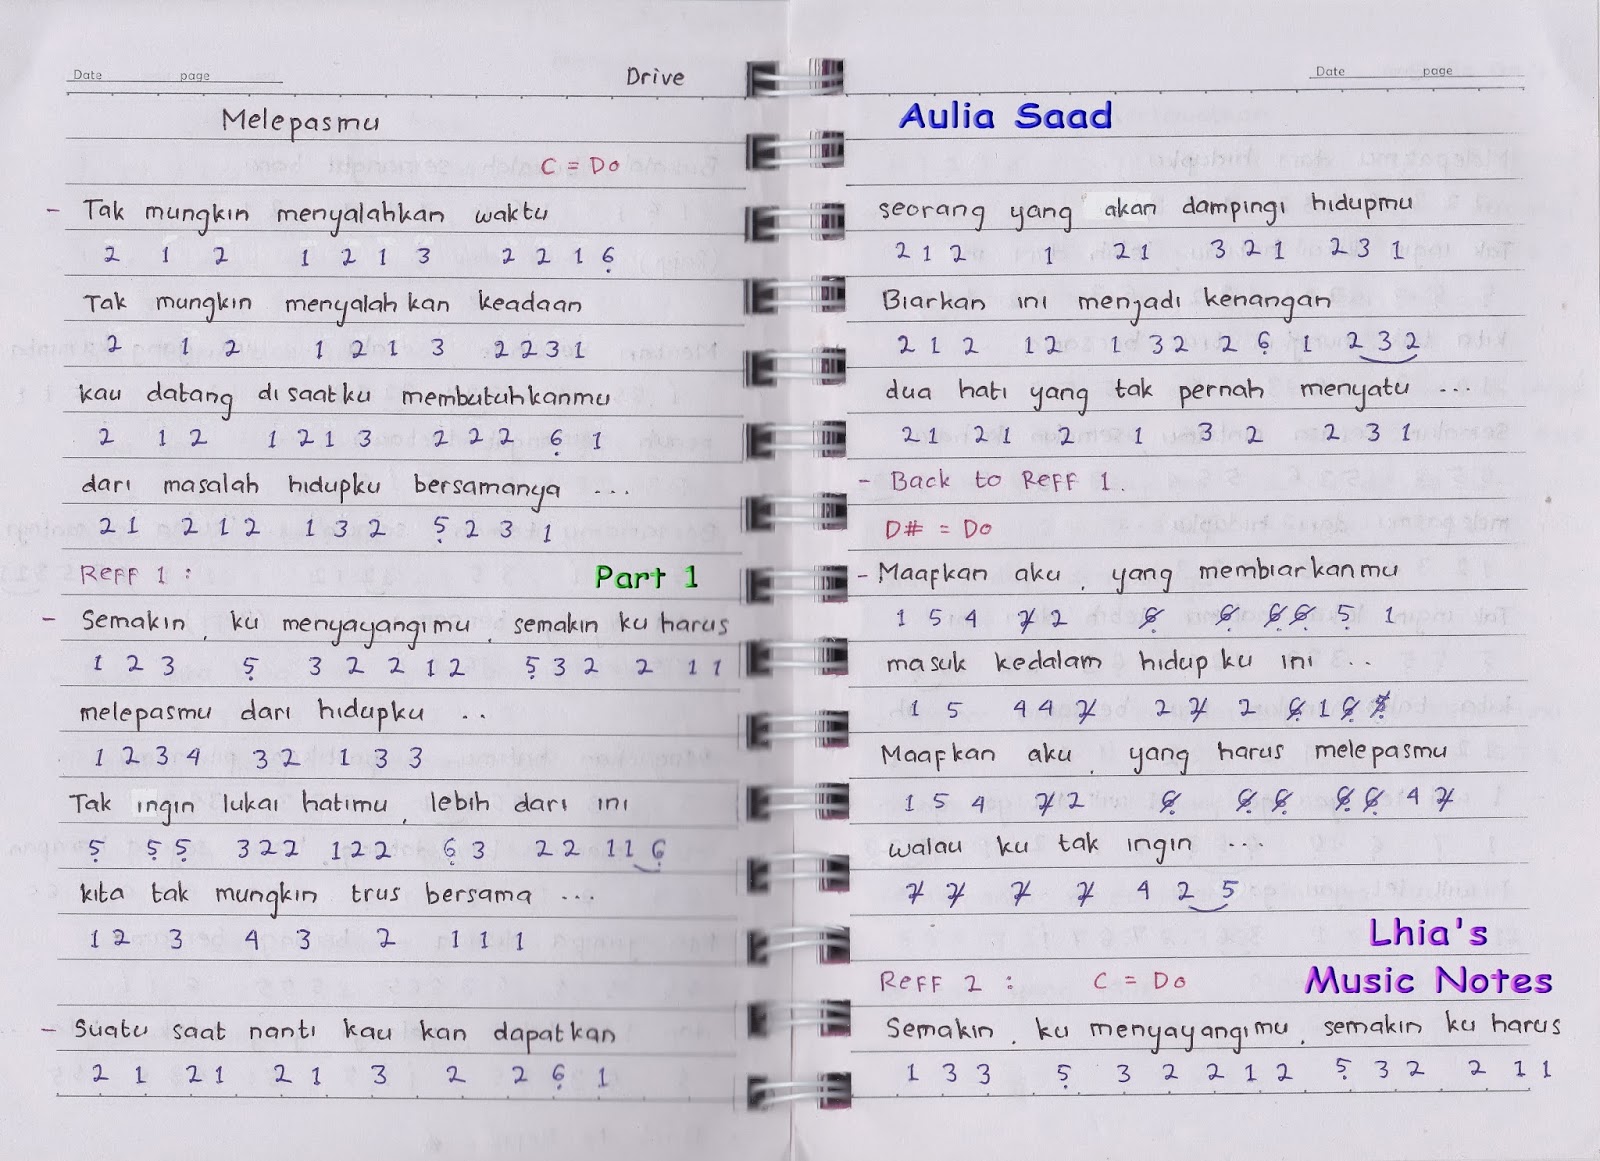 Date page
Drive
Melepasmu
C = Do
- Tak mungkin menyalahkan waktu
2 1 2 1 2 1 3 2 2 1 6̣
Tak mungkin menyalah kan keadaan
2 1 2 1 2 1 3 2 2 3 1
kau datang disaatku membutuhkanmu
2 1 2 1 2 1 3 2 2 2 6̣ 1
dari masalah hidupku bersamanya ...
2 1 2 1 2 1 3 2 5̣ 2 3 1
Reff 1 :
Part 1
- Semakin, ku menyayangimu, semakin ku harus
1 2 3 5̣ 3 2 2 1 2 5̣ 3 2 2 1 1
melepasmu dari hidupku ..
1 2 3 4 3 2 1 3 3
Tak ingin lukai hatimu, lebih dari ini
5̣ 5̣ 5̣ 3 2 2 1 2 2 6̣ 3 2 2 1 1 6̣
kita tak mungkin trus bersama ...
1 2 3 4 3 2 1 1 1
- Suatu saat nanti kau kan dapatkan
2 1 2 1 2 1 3 2 2 6̣ 1
Date page
Aulia Saad
seorang yang akan dampingi hidupmu
2 1 2 1 2 1 3 2 1 2 3 1
Biarkan ini menjadi kenangan
2 1 2 1 2 1 3 2 2 6̣ 1 2 3 2
dua hati yang tak pernah menyatu ...
2 1 2 1 2 1 3 2 2 3 1
- Back to Reff 1.
D# = Do
- Maafkan aku, yang membiarkanmu
1 5 4 7̸ 2 6̸̣ 6̸̣ 6̸̣ 6̸̣ 5̣ 1
masuk kedalam hidup ku ini ..
1 5 4 4 7̸ 2 7̸ 2 6̸̣ 1 6̸̣
Maafkan aku, yang harus melepasmu
1 5 4 7̸ 2 6̸̣ 6̸̣ 6̸̣ 6̸̣ 6̸̣ 4 7̸
walau ku tak ingin ...
7̸ 7̸ 7̸ 7̸ 4 2 5
Lhia's
Music Notes
Reff 2 : C = Do
Semakin, ku menyayangimu, semakin ku harus
1 3 3 5̣ 3 2 2 1 2 5̣ 3 2 2 1 1